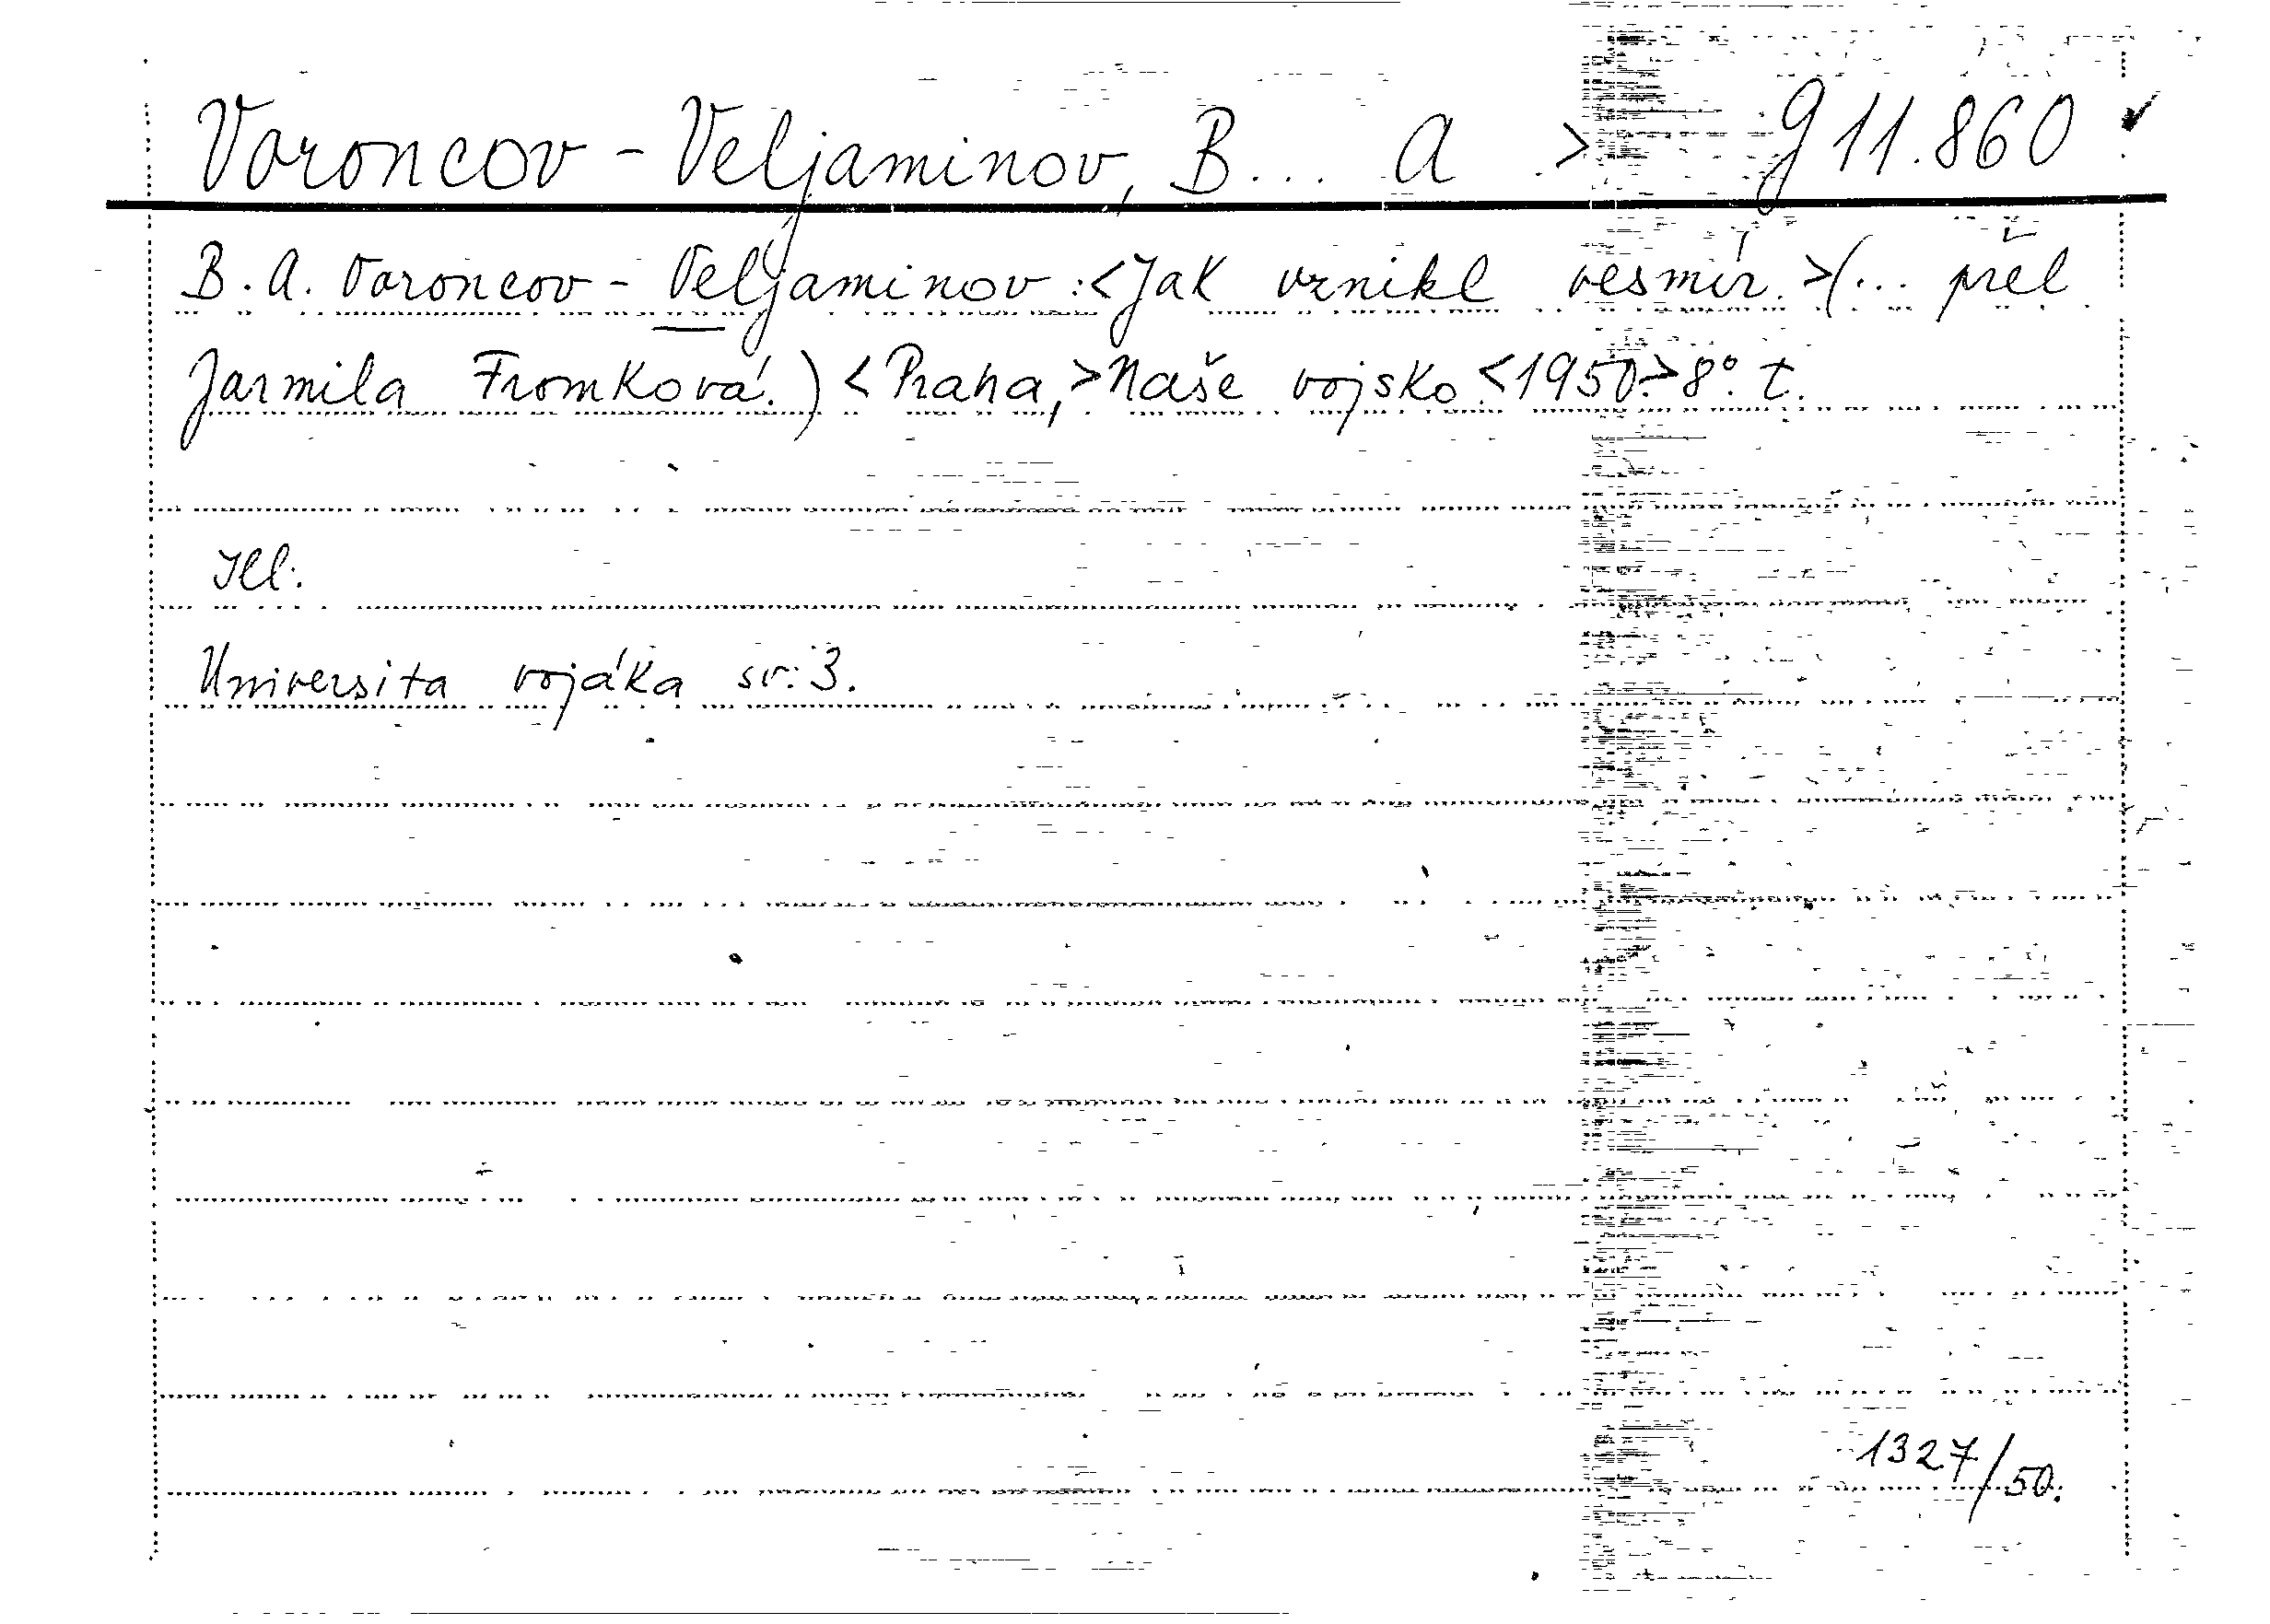 Voroncov-Veljaminov, B... A > g 11.860
B. A. Voroncov-Veljaminov: <Jak vznikl vesmír.> (... přel
Jarmila Fromková.) <Praha,> Naše vojsko <1950.> 8° t.
Ill.
Universita vojáka sv. 3.
1327/50.